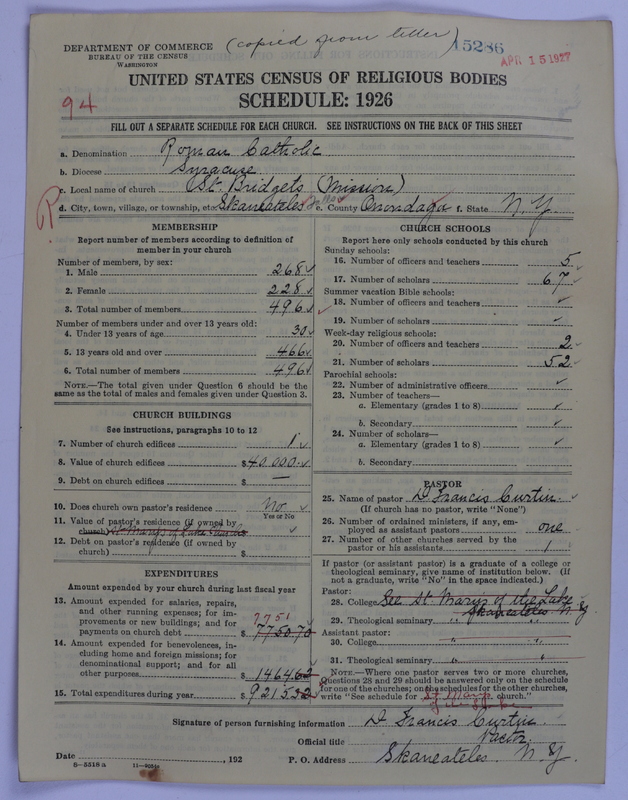 (copied from letter)
15286
APR 15 1927
DEPARTMENT OF COMMERCE
BUREAU OF THE CENSUS
WASHINGTON
UNITED STATES CENSUS OF RELIGIOUS BODIES
SCHEDULE: 1926
94
FILL OUT A SEPARATE SCHEDULE FOR EACH CHURCH. SEE INSTRUCTIONS ON THE BACK OF THIS SHEET
a. Denomination Roman Catholic
b. Diocese Syracuse
c. Local name of church St. Bridgets (Mission)
d. City, town, village, or township, etc. Skaneateles e. County Onondaga f. State N.Y.
R
MEMBERSHIP
Report number of members according to definition of
member in your church
Number of members, by sex:
1. Male 268
2. Female 228
3. Total number of members 496
Number of members under and over 13 years old:
4. Under 13 years of age 30
5. 13 years old and over 466
6. Total number of members 496
NOTE.—The total given under Question 6 should be the
same as the total of males and females given under Question 3.
CHURCH BUILDINGS
See instructions, paragraphs 10 to 12
7. Number of church edifices 1
8. Value of church edifices $40000.
9. Debt on church edifices $ —
10. Does church own pastor's residence No
Yes or No
11. Value of pastor's residence (if owned by
church) St Marys of Lake
12. Debt on pastor's residence (if owned by
church) $
EXPENDITURES
Amount expended by your church during last fiscal year
13. Amount expended for salaries, repairs,
and other running expenses; for im-
provements or new buildings; and for
payments on church debt $7750.70
7751
14. Amount expended for benevolences, in-
cluding home and foreign missions; for
denominational support; and for all
other purposes $1464.62
15. Total expenditures during year $9215.32
CHURCH SCHOOLS
Report here only schools conducted by this church
Sunday schools:
16. Number of officers and teachers 5
17. Number of scholars 67
Summer vacation Bible schools:
18. Number of officers and teachers
19. Number of scholars
Week-day religious schools:
20. Number of officers and teachers 2
21. Number of scholars 52
Parochial schools:
22. Number of administrative officers
23. Number of teachers—
a. Elementary (grades 1 to 8)
b. Secondary
24. Number of scholars—
a. Elementary (grades 1 to 8)
b. Secondary
PASTOR
25. Name of pastor D Francis Curtin
(If church has no pastor, write "None")
26. Number of ordained ministers, if any, em-
ployed as assistant pastors one
27. Number of other churches served by the
pastor or his assistants 1
If pastor (or assistant pastor) is a graduate of a college or
theological seminary, give name of institution below. (If
not a graduate, write "No" in the space indicated.)
Pastor:
28. College See St Marys of the Lake
29. Theological seminary " Skaneateles N.Y
Assistant pastor:
30. College " "
31. Theological seminary " "
NOTE.—Where one pastor serves two or more churches,
Questions 28 and 29 should be answered only on the schedule
for one of the churches; on the schedules for the other churches,
write "See schedule for St Marys church."
of the Lake
Signature of person furnishing information D Francis Curtin
Official title Rector
Date , 192 P. O. Address Skaneateles N.Y.
8—5518 a